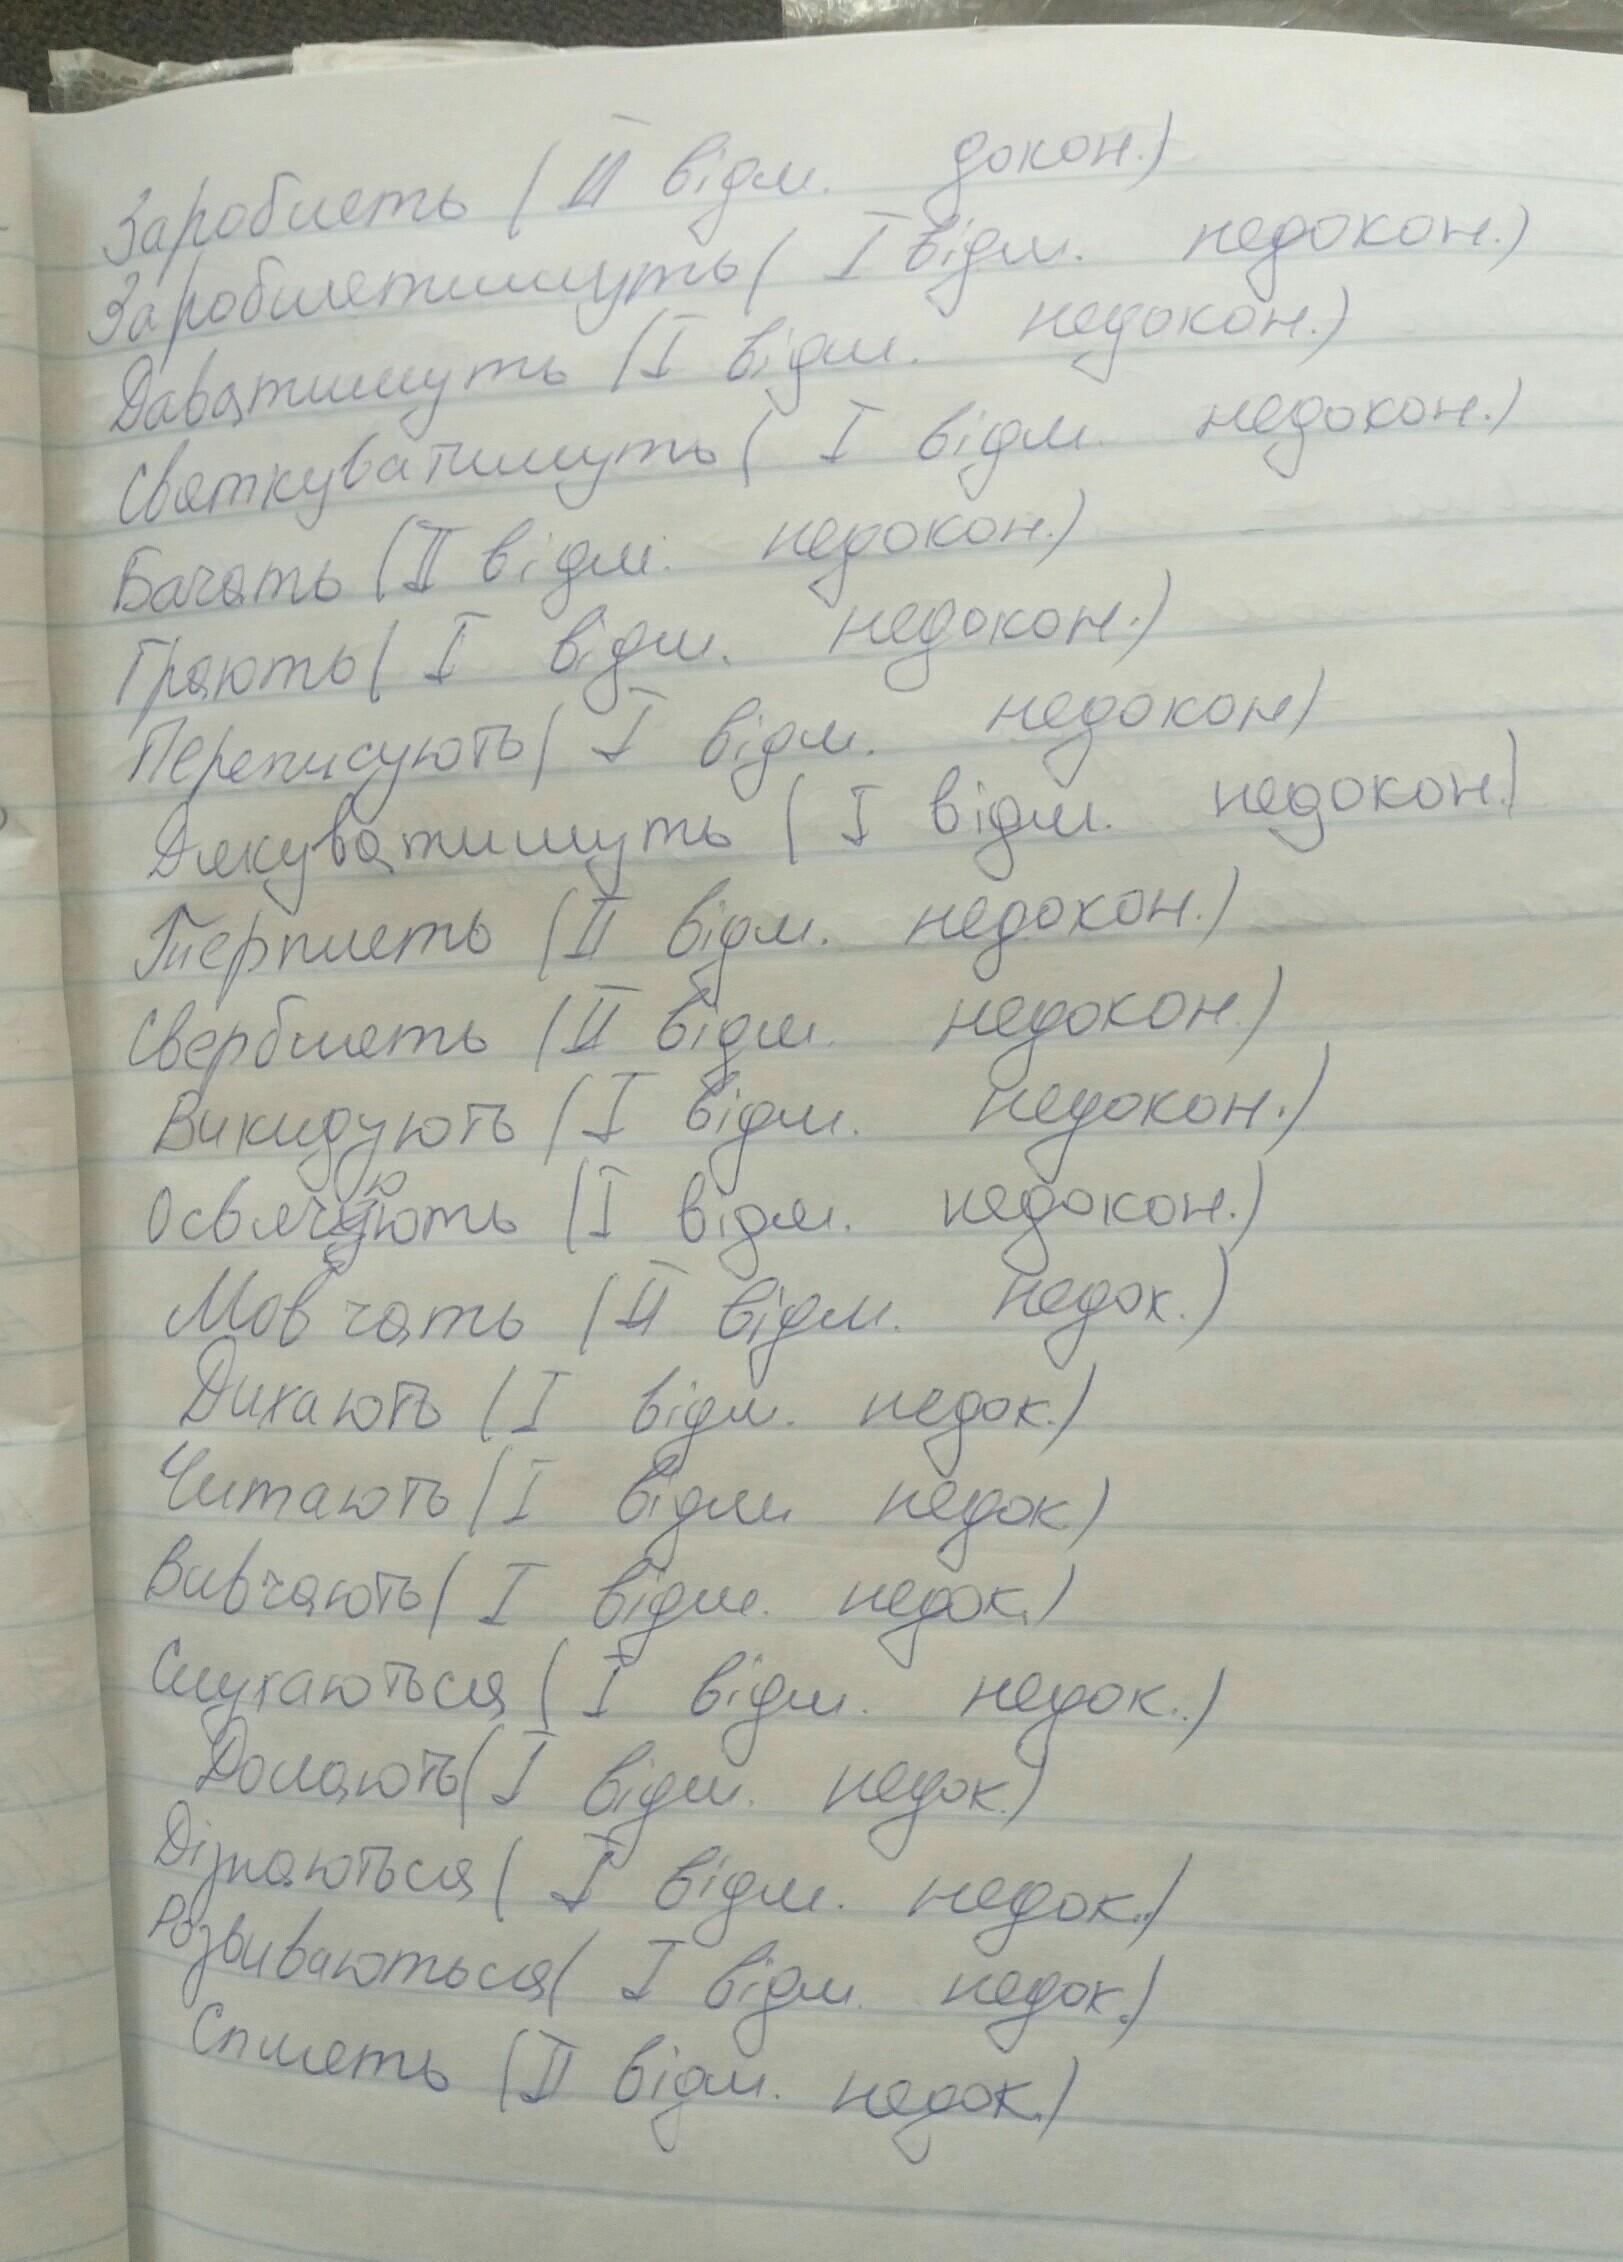 Зароблять ( II відм. докон.)
Зароблятимуть ( I відм. недокон.)
Даватимуть ( I відм. недокон.)
Святкуватимуть ( I відм. недокон.)
Бачать ( II відм. недокон.)
Грають ( I відм. недокон.)
Переписують ( I відм. недокон)
Дякуватимуть ( I відм. недокон.)
Терплять ( II відм. недокон.)
Сверблять ( II відм. недокон.)
Викидують ( I відм. недокон.)
Освячують ( I відм. недокон.)
Мовчать ( II відм. недок.)
Дихають ( I відм. недок.)
Читають ( I відм. недок.)
Вивчають ( I відм. недок.)
Слухаються ( I відм. недок.)
Долають ( I відм. недок.)
Дізнаються ( I відм. недок.)
Розвиваються ( I відм. недок.)
Сплять ( II відм. недок.)